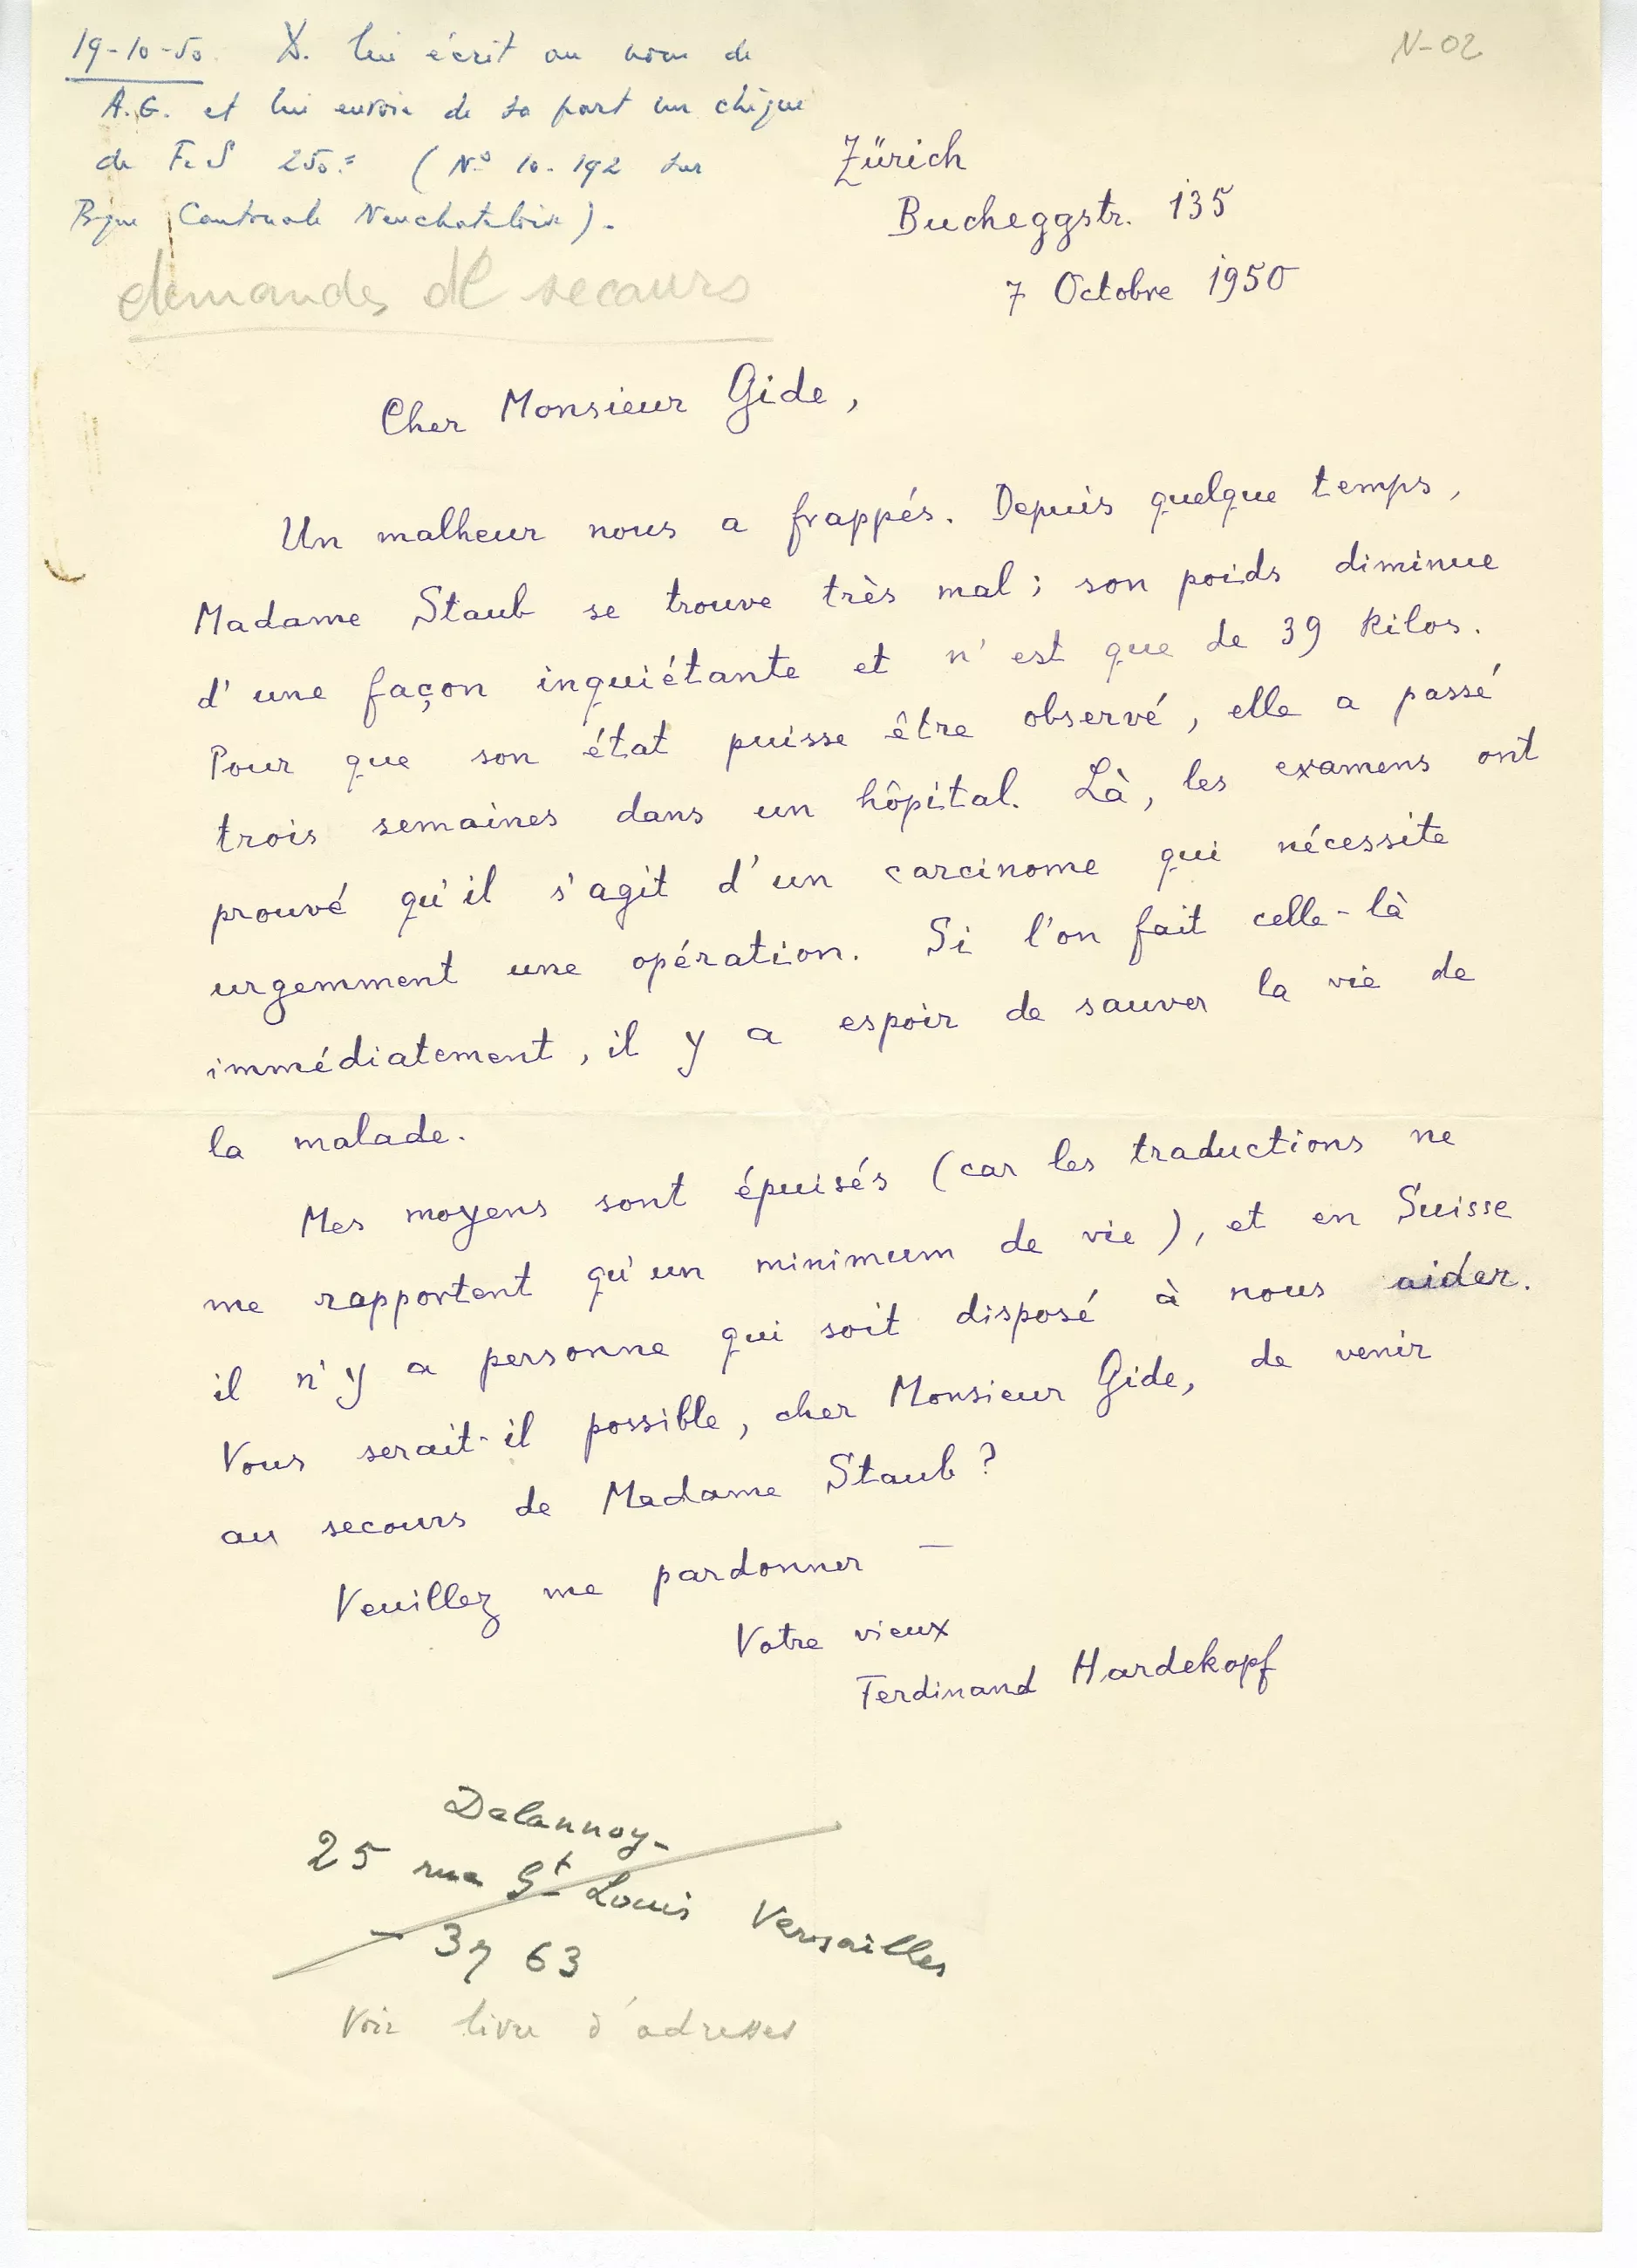 19-10-50. X. lui écrit au nom de
A.G. et lui envoie de sa part un chèque
de Fr. S 250.= (No 10.192 sur
Bque Cantonale Neuchateloise).
N-02
demandes de secours
Zürich
Bucheggstr. 135
7 Octobre 1950
Cher Monsieur Gide,
Un malheur nous a frappés. Depuis quelque temps,
Madame Staub se trouve très mal; son poids diminue
d'une façon inquiétante et n'est que de 39 kilos.
Pour que son état puisse être observé, elle a passé
trois semaines dans un hôpital. Là, les examens ont
prouvé qu'il s'agit d'un carcinome qui nécessite
urgemment une opération. Si l'on fait celle-là
immédiatement, il y a espoir de sauver la vie de
la malade.
Mes moyens sont épuisés (car les traductions ne
me rapportent qu'un minimum de vie), et en Suisse
il n'y a personne qui soit disposé à nous aider.
Vous serait-il possible, cher Monsieur Gide, de venir
au secours de Madame Staub?
Veuillez me pardonner —
Votre vieux
Ferdinand Hardekopf
Delannoy-
25 rue St Louis Versailles
— 37 63
Voir livre d'adresses